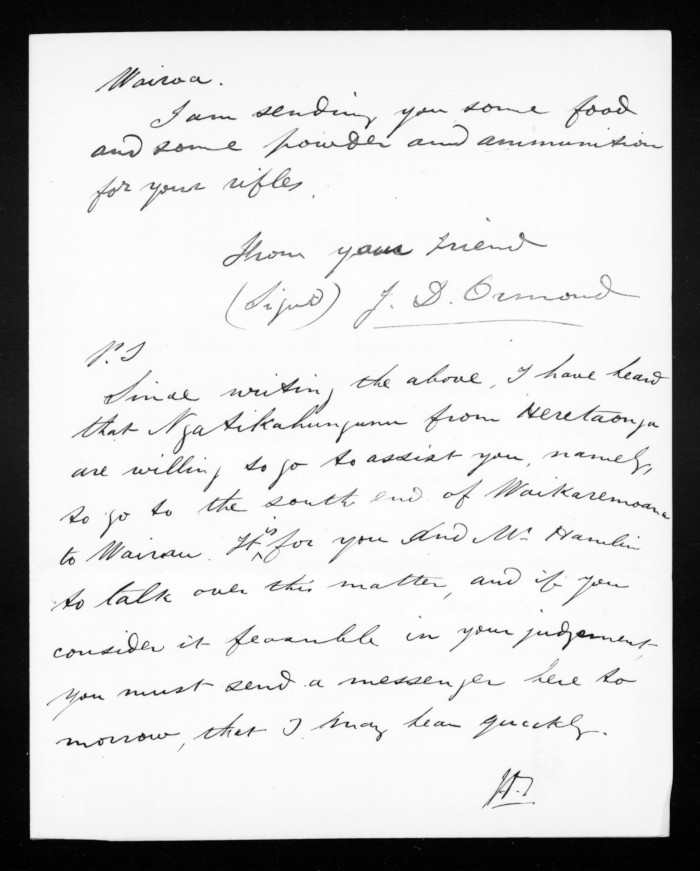 Wairoa.
I am sending you some food
and some powder and ammunition
for your rifles.
From your friend
(Signed) J. D. Ormond
P.S
Since writing the above, I have heard
that Ngatikahungunu from Heretaonga
are willing to go to assist you, namely,
to go to the south end of Waikaremoana
to Wairau. It is for you and Mr Hamlin
to talk over this matter, and if you
consider it feasible in your judgement,
you must send a messenger here to
morrow, that I may hear quickly.